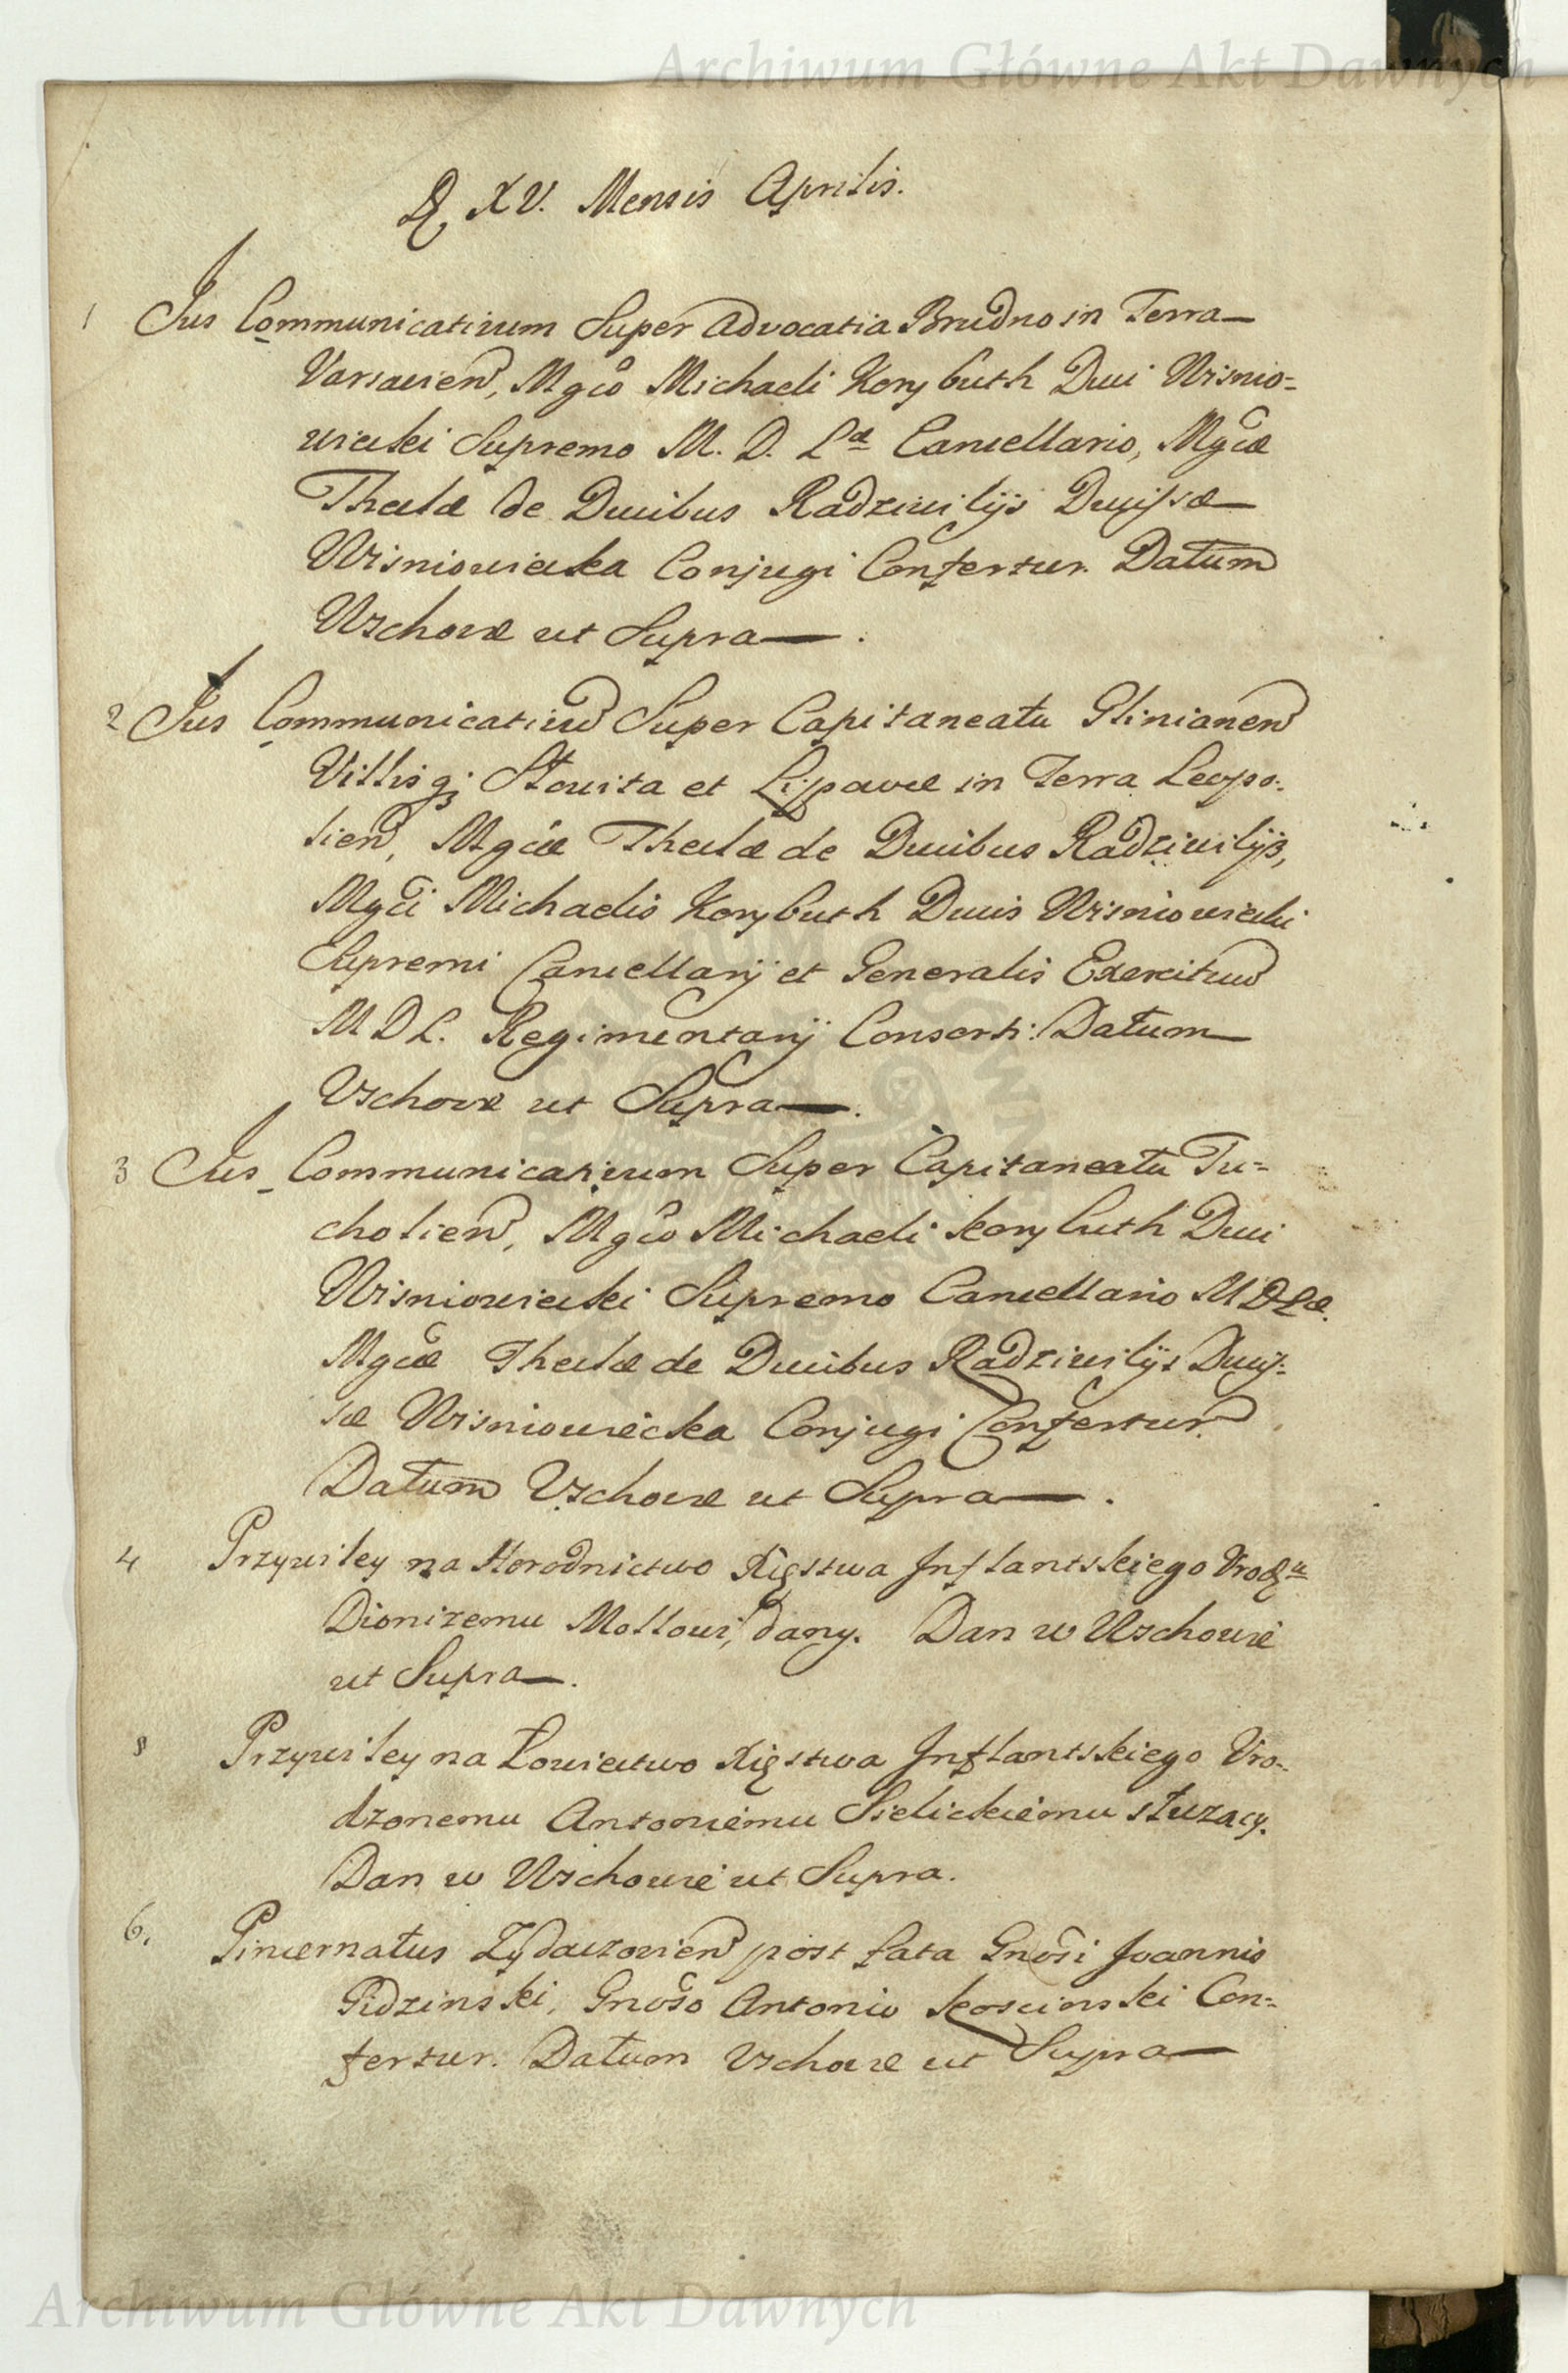 Archiwum Główne Akt Dawnych
D. XV. Mensis Aprilis.
1 Jus Communicativum Super Advocatia Brudno in Terra
Varsavien, Mgco Michaeli Korybuth Duci Wisnio=
wiecki Supremo M. D. Lae Cancellario, Mgcae
Theclae de Ducibus Radziwilijs Ducissae
Wisniowiecka Conjugi Confertur. Datum
Wschovae ut Supra.
2 Jus Communicativum Super Capitaneatu Glinianen
Villisq; Stowita et Lipavce in Terra Leopo:
lien, Mgcae Theclae de Ducibus Radziwilijs,
Mgci Michaelis Korybuth Ducis Wisniowiecki
Supremi Cancellarij et Generalis Exercituu
M D L. Regimentarij Consorti: Datum
Vschovae ut Supra.
3 Jus Communicativum Super Capitaneatu Tu=
cholien, Mgco Michaeli Korybuth Duci
Wisniowiecki Supremo Cancellario M D Lae.
Mgcae Theclae de Ducibus Radziwilijs Ducis:
sae Wisniowiecka Conjugi Confertur.
Datum Vschovae ut Supra.
4 Przywiley na Horodnictwo Xięstwa Inflantskiego Vrodzu
Dionizemu Mollowi, dany. Dan w Wschowie
ut Supra.
Przywiley na Łowiectwo Xięstwa Inflantskiego Vro-
dzonemu Antoniemu Sielickiemu służący.
Dan w Wschowie ut Supra.
6. Pincernatus Zydaczovien post fata Gnosi Joannis
Gidzinski, Gnoso Antonio Koscinski Con=
fertur. Datum Vschovae ut Supra
Archiwum Główne Akt Dawnych